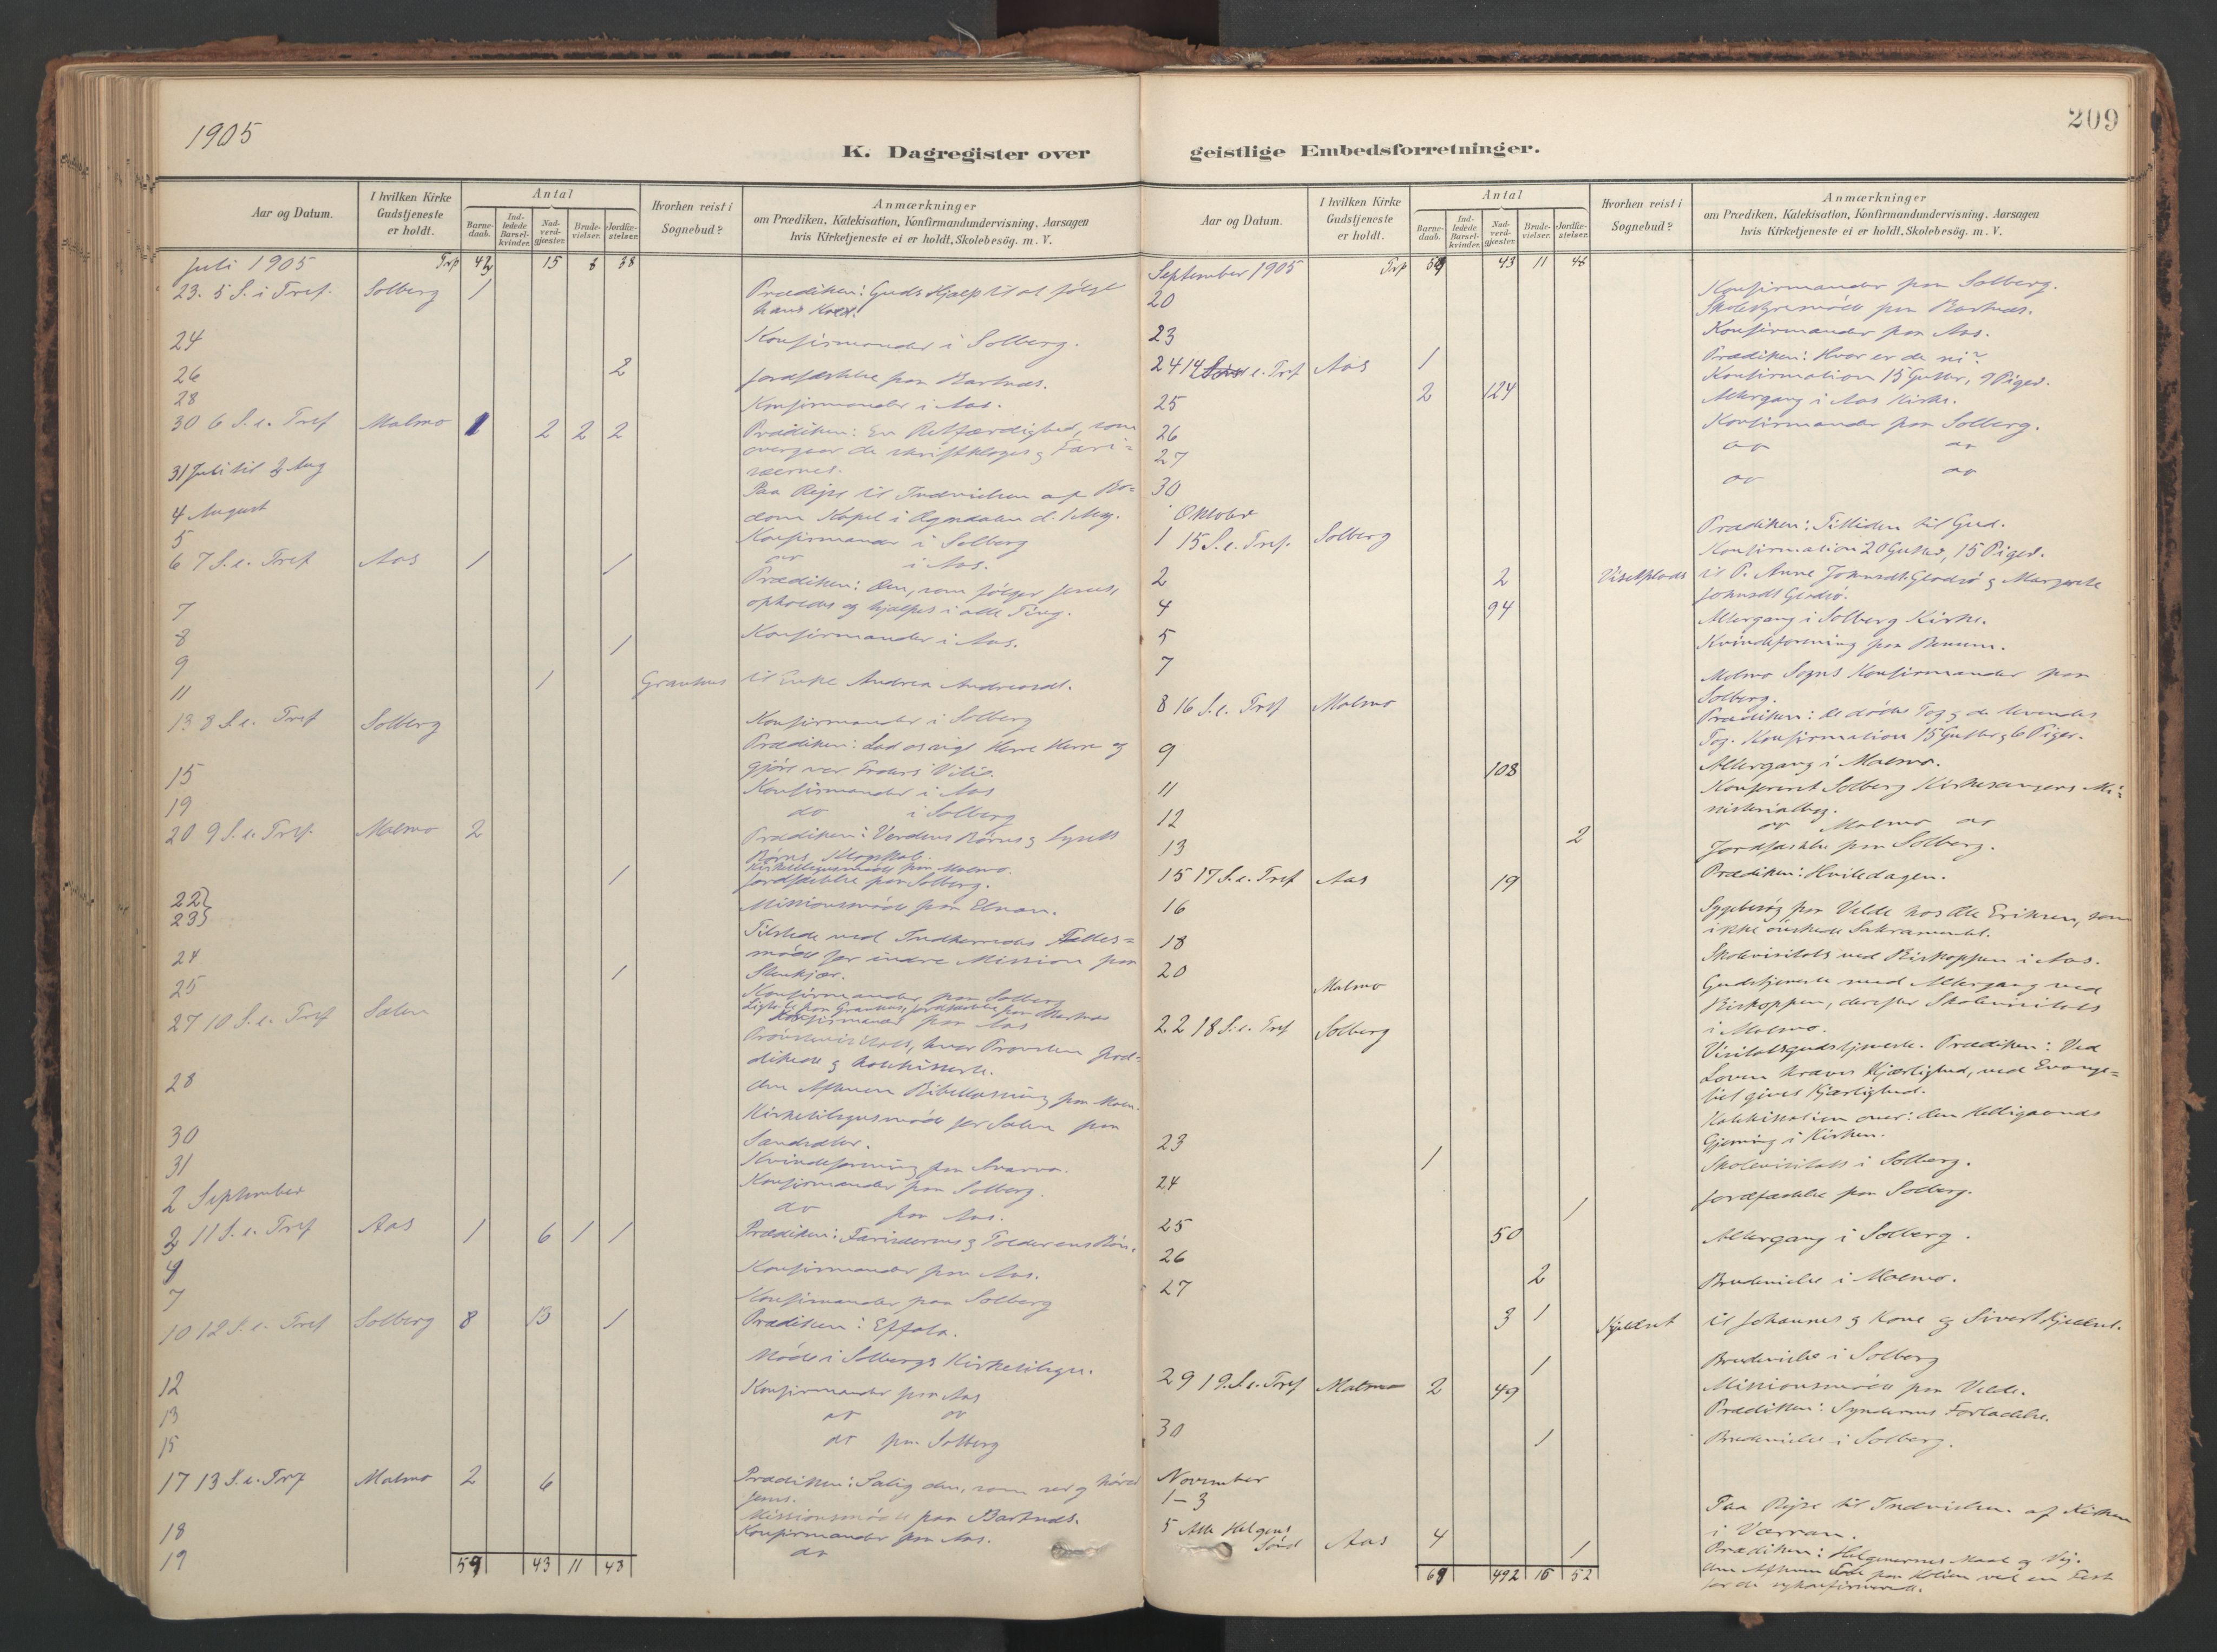 1905
209
K. Dagregister over
geistlige Embedsforretninger.
Aar og Datum.
I hvilken Kirke Gudstjeneste er holdt.
Antal
Barne-daab.
Ind-ledede Barsel-kvinder.
Nad-verd-gjester.
Brude-vielser.
Jordfæ-stelser.
Hvorhen reist i Sognebud?
Anmærkninger
om Prædiken, Katekisation, Konfirmandundervisning, Aarsagen
hvis Kirketjeneste ei er holdt, Skolebesög. m. V.
Juli 1905 Trp 15 38
23. 5 S. e. Tref. Solberg 1 Prædiken: Guds Hjælp til at følge
hans Kald.
24 Konfirmander i Solberg.
26 2 Jordfæstelse paa Bartnæs.
28 Konfirmander i Aas.
30 6 S. e. Tref Malmo 1 2 2 2 Prædiken: En Retfærdighed, som
overgaar de skriftkloges og Fari-
sæernes.
31 Juli til 3 Aug Paa Rejse til Indvielsen af Bo-
dom Kapel i Ogndalen d. 1 Aug.
4 August Konfirmander i Solberg
5 do i Aas.
6 7 S. e. Tref Aas 1 1 Prædiken: Den, som følger Jesus,
opholdes og hjælpes i alle Ting.
7 Konfirmander i Aas.
8 1
9 1 til Enke Andrea Andreasdt.
11 Konfirmander i Solberg
13 8 S. e. Tref Solberg Prædiken: Lad os sige Herre Herre og
gjøre vor Faders Vilje.
15 Konfirmander i Aas
19 do i Solberg
20 9 S. e. Tref. Malmo 2 Prædiken: Verdens Børns og Lysets
Børns Klogskab.
Kirketilsynsmøde paa Malmo.
1 Jordfæstelse paa Solberg.
22
23 Missionsmøde paa Elnan.
Tilstede ved Indherreds Fælles-
møde for indre Mission paa
Stenkjær.
24
25 1 Konfirmander paa Solberg
Konfirmander paa Aas
27 10 S. e. Tref Salen hvor Provsten præ-
dikede og katekiserte.
28 Kirketilsynsmøde for Salen paa
30 Kvindeforening paa
31 Konfirmander paa Solberg.
2 September do paa Aas.
3 11 S. e. Tref Aas 1 6 1 1 Prædiken: Farisæerens og Tolderens Bøn.
4 Konfirmander paa Aas.
7 Konfirmander paa Solberg
10 12 S. e. Tref Solberg 8 13 1 Prædiken: Effata.
Møde i Solbergs Kirketilsyn.
12 Konfirmander paa Aas
13 do do
15 do paa Solberg
17 13 S. e. Tref Malmo 2 6 Prædiken: Salig den, som ser og hører
Jesus.
Missionsmøde paa Bartnæs.
18 Konfirmander paa Aas.
19 do
43 11 43
Aar og Datum.
I hvilken Kirke Gudstjeneste er holdt.
Antal
Barne-daab.
Ind-ledede Barsel-kvinder.
Nad-verd-gjester.
Brude-vielser.
Jordfæ-stelser.
Hvorhen reist i Sognebud?
Anmærkninger
om Prædiken, Katekisation, Konfirmandundervisning, Aarsagen
hvis Kirketjeneste ei er holdt, Skolebesög. m. V.
September 1905 Trp 43 11
Konfirmander paa Solberg.
20 Skolestyremøde paa Bartnæs.
23 Konfirmander paa Aas.
24 14 S. e. Tref Aas 1 Prædiken: Hvor er de ni?
Konfirmation 15 Gutter, 9 Piger.
25 2 124 Altergang i Aas Kirke.
26 Konfirmander paa Solberg.
27 do do
30 do do
Oktober
1 15 S. e. Tref. Solberg Prædiken: Tilliden til Gud.
Konfirmation 20 Gutter, 15 Piger.
2 2 til P. Anne Johnsdt. og Margrete
Johnsdt
4 94 Altergang i Solberg Kirke.
5 Kvindeforening paa
7 Malmo Sogns Konfirmander paa
Solberg.
8 16 S. e. Tref Malmo Prædiken: De dødes Tog og de levendes
Tog. Konfirmation 15 Gutter og 6 Piger.
9 108 Altergang i Malmo.
11 Konfereret Solberg Kirkesangers Mi-
nisterialbog.
12 do Malmo do
13 2 Jordfæstelse paa Solberg.
15 17 S. e. Tref Aas 19 Prædiken: Hviledagen.
16 Sygebesøg paa Velde hos Ole Eriksen, som
ikke ønskede Sakramentet.
18 Skolevisitats ved Biskoppen i Aas.
20 Malmo Gudstjeneste med Altergang ved
Biskoppen, derefter Skolevisitats
i Malmo.
22 18 S. e. Tref Solberg Visitatsgudstjeneste. Prædiken: Ved
Loven kræves Kjærlighed, ved Evange-
liet gives Kjærlighed.
Katekisation over: den Helligaands
Gjerning i Kirken.
23 1 Skolevisitats i Solberg.
24 1 Jordfæstelse paa Solberg.
25 50 Altergang i Solberg.
26 2 Brudevielse i Malmo.
27 3 1 til Johannes og Kone og Sivert
1 Brudevielse i Solberg
29 19 S. e. Tref Malmo 2 49 Missionsmøde paa Velde.
Prædiken: Syndernes Forladelse.
30 1 Brudevielse i Solberg.
November
1-3 Paa Rejse til Indvielsen af Kirken
i Værran.
5 Alle Helgens
Sønd Aas 4 1 Prædiken: Helgenernes Maal og Vej.
ved en Fest
for de nykonfirmerede.
492 52